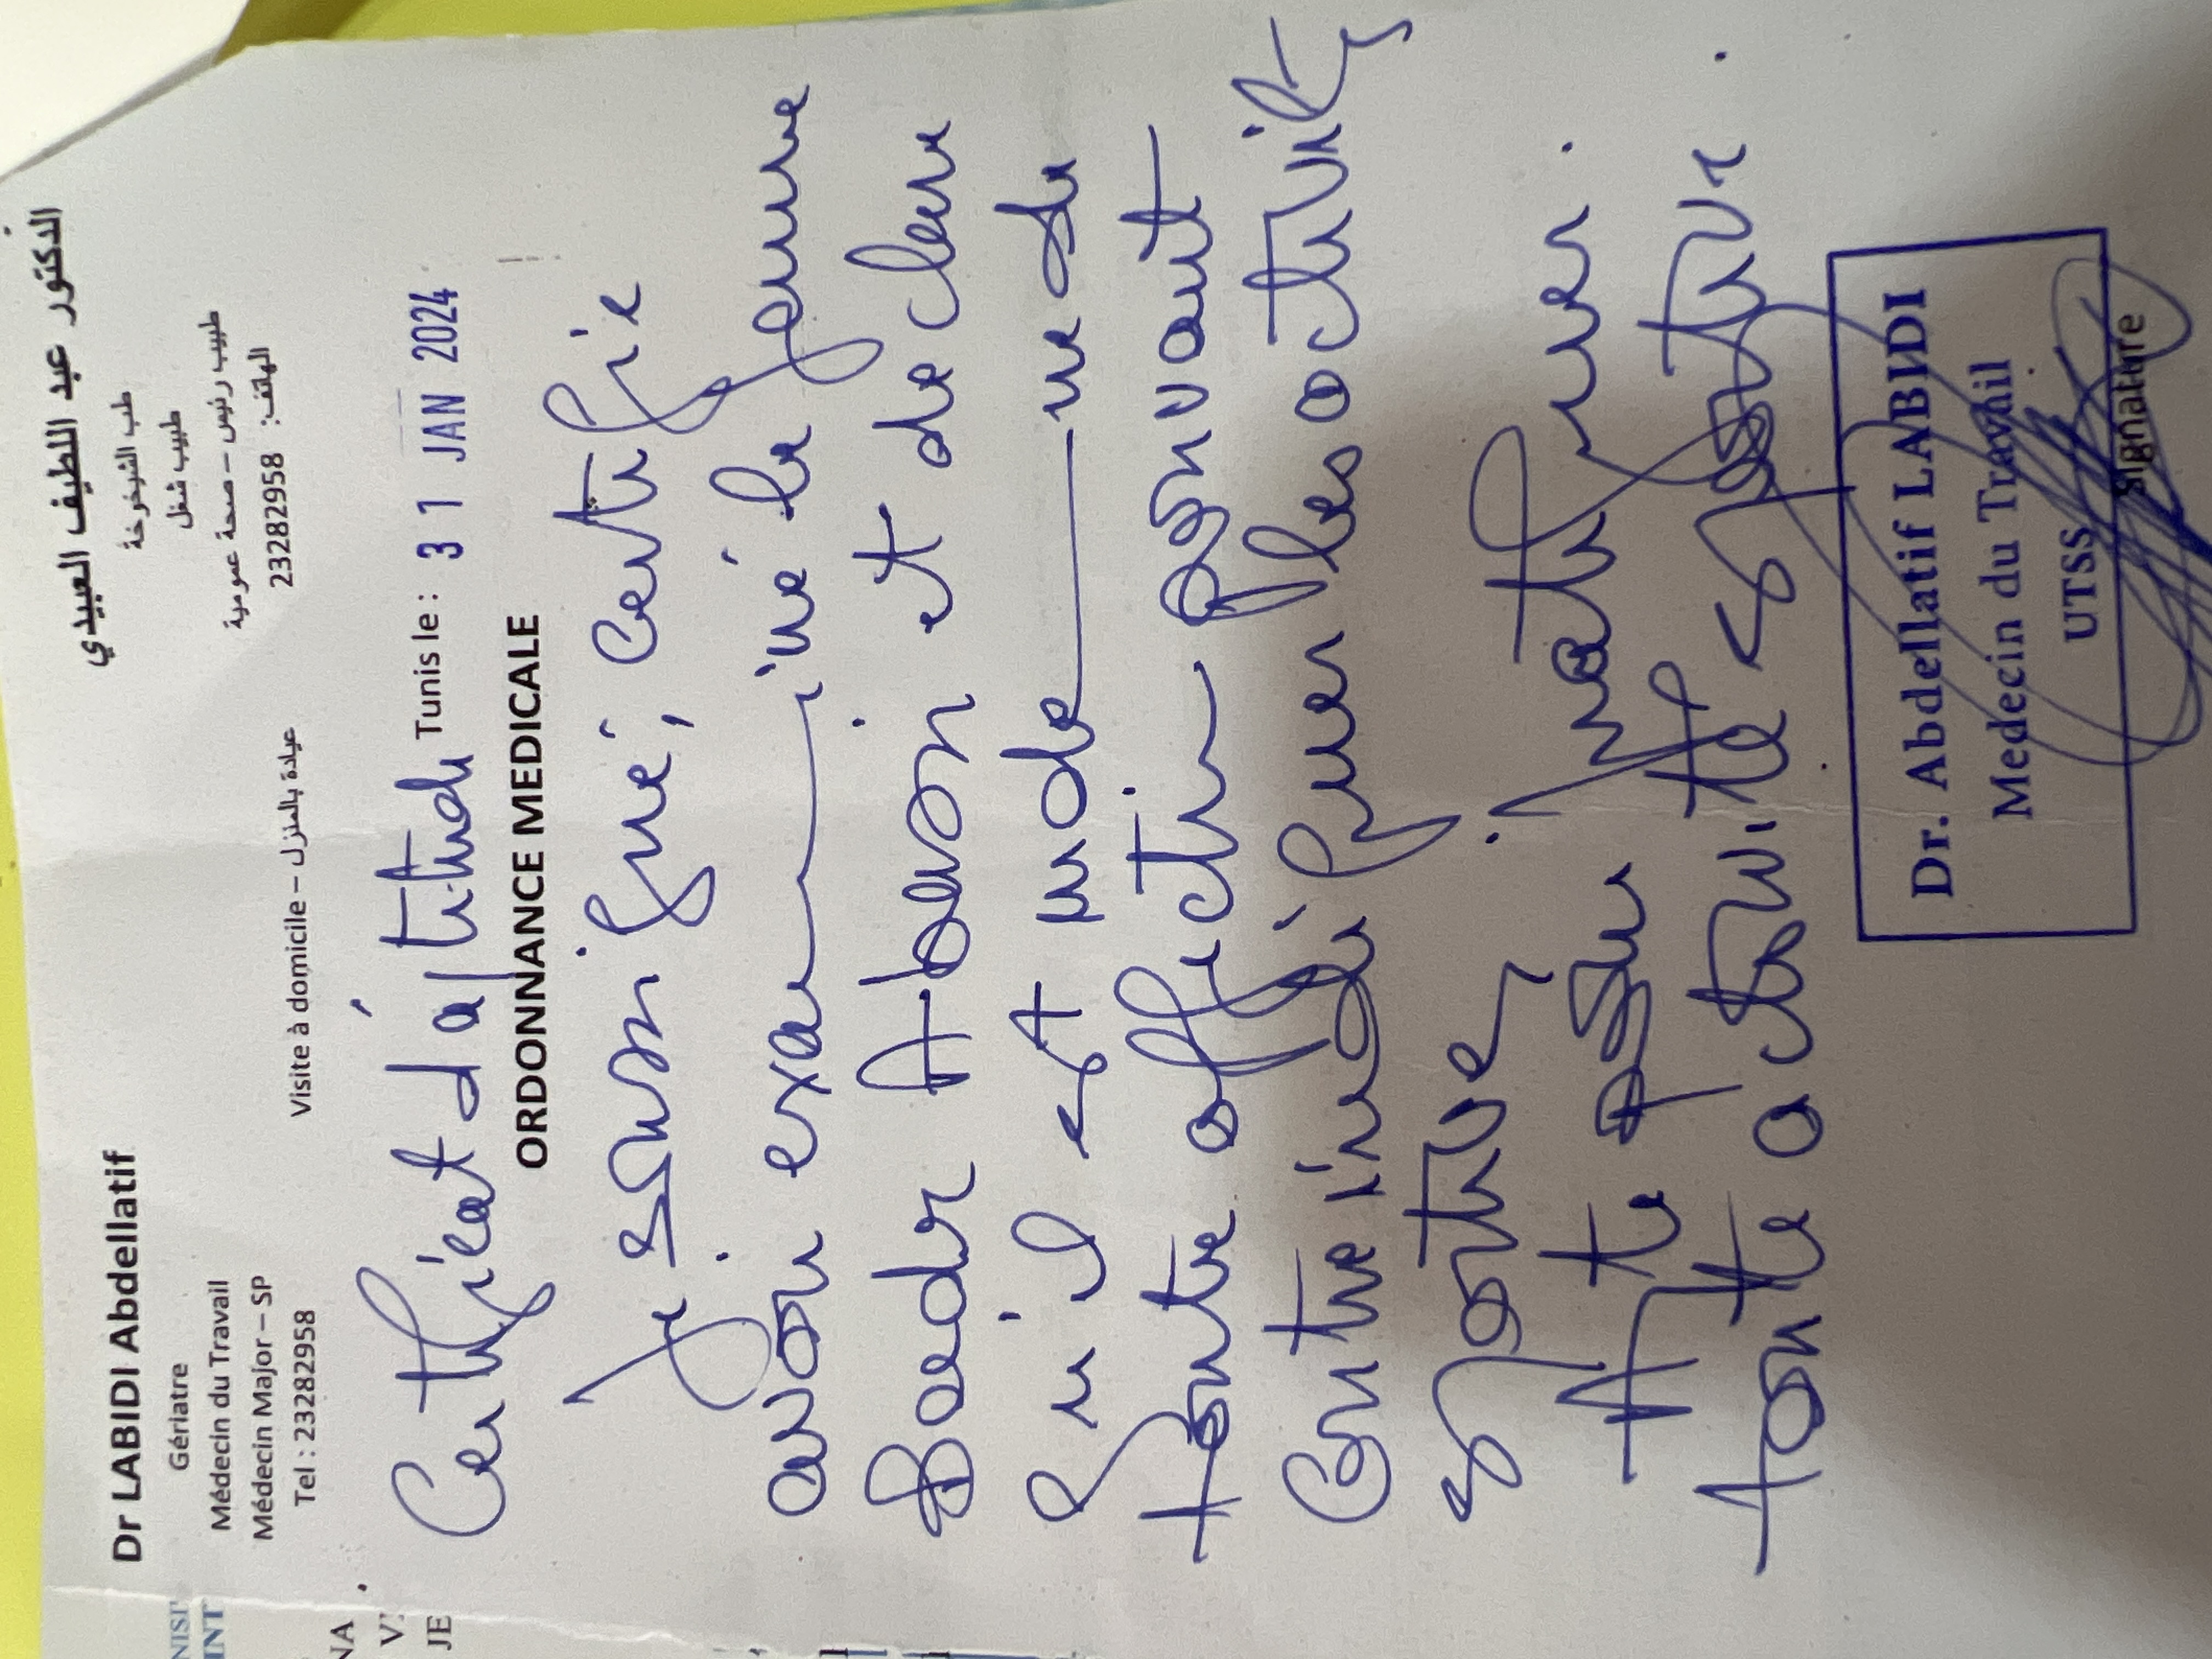 Dr LABIDI Abdellatif
Gériatre
Médecin du Travail
Médecin Major – SP
Tel : 23282958
الدكتور عبد اللطيف العبيدي
طب الشيخوخة
طبيب شغل
طبيب رئيس – صحة عمومية
الهاتف: 23282958
Visite à domicile – عيادة بالمنزل
Certificat d'aptitude Tunis le : 31 JAN 2024
ORDONNANCE MEDICALE
Je soussigné, certifie
avoir examiné le jeune
Badr et déclare
qu'il est indemne de
toute affection pouvant
contre indiquer les activités
sportives
Apte pour
toute activité sportive.
Dr. Abdellatif LABIDI
Medecin du Travail
UTSS
Signature
NISI
INT
NA
JE